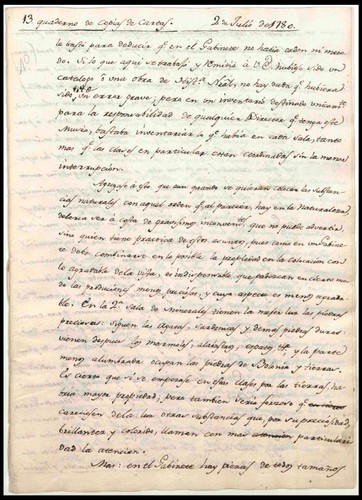 13 quaderno de Copias de Cartas. 2 Julio de 1780.
le bastó para deducir qe. en el Gabinete no havia orden ni meto-
do. Si lo que aqui se trabajó y remitió á V.E. hubiese sido un
catalogo ó una obra de Histª. Natˡ. no hay duda qe. hubiera
sido un error grave; pero en un inventario destinado unicamte.
para la responsabilidad de qualquiera Director qe. tenga este
Museo, bastaba inventariar lo qe. havia en cada Sala, tanto
mas qe. las clases en particular estan coordinadas sin la menor
interrupcion.
Agregase á esto que aun quando se quisieran colocar las substan-
cias naturales con aquel orden qe. al parecer, hay en la Naturaleza,
deberia ser á costa de gravisimos inconvenites. que no puede advertir
sino quien tiene practica de estos asuntos, pues como en un Gabine-
te debe combinarse en lo posible la propiedad en la colocacion con
lo agradable de la vista, es indispensable que padezcan en cierto modo
las producciones menos preciosas, y cuyo aspecto es menos agrada-
ble: En la 2ª. Sala de Minerales tienen la nasfa luz las piedras
preciosas: siguen las Agatas, Sardonicas, y demas piedras duras:
vienen despues los marmoles, alabastros, espatos &ª. y la parte
menos alumbrada ocupan las piedras de Bolonia y tierras.
Es cierto que si se empezase en esta clase por las tierras, ha-
bria mayor propiedad; pero tambien seria forzoso qe.
careciesen de la luz otras substancias que, por su preciosidad,
brillantez y colorido, llaman con mas particulari-
dad la atencion.
Mas: en el Gabinete hay piezas de todos tamaños